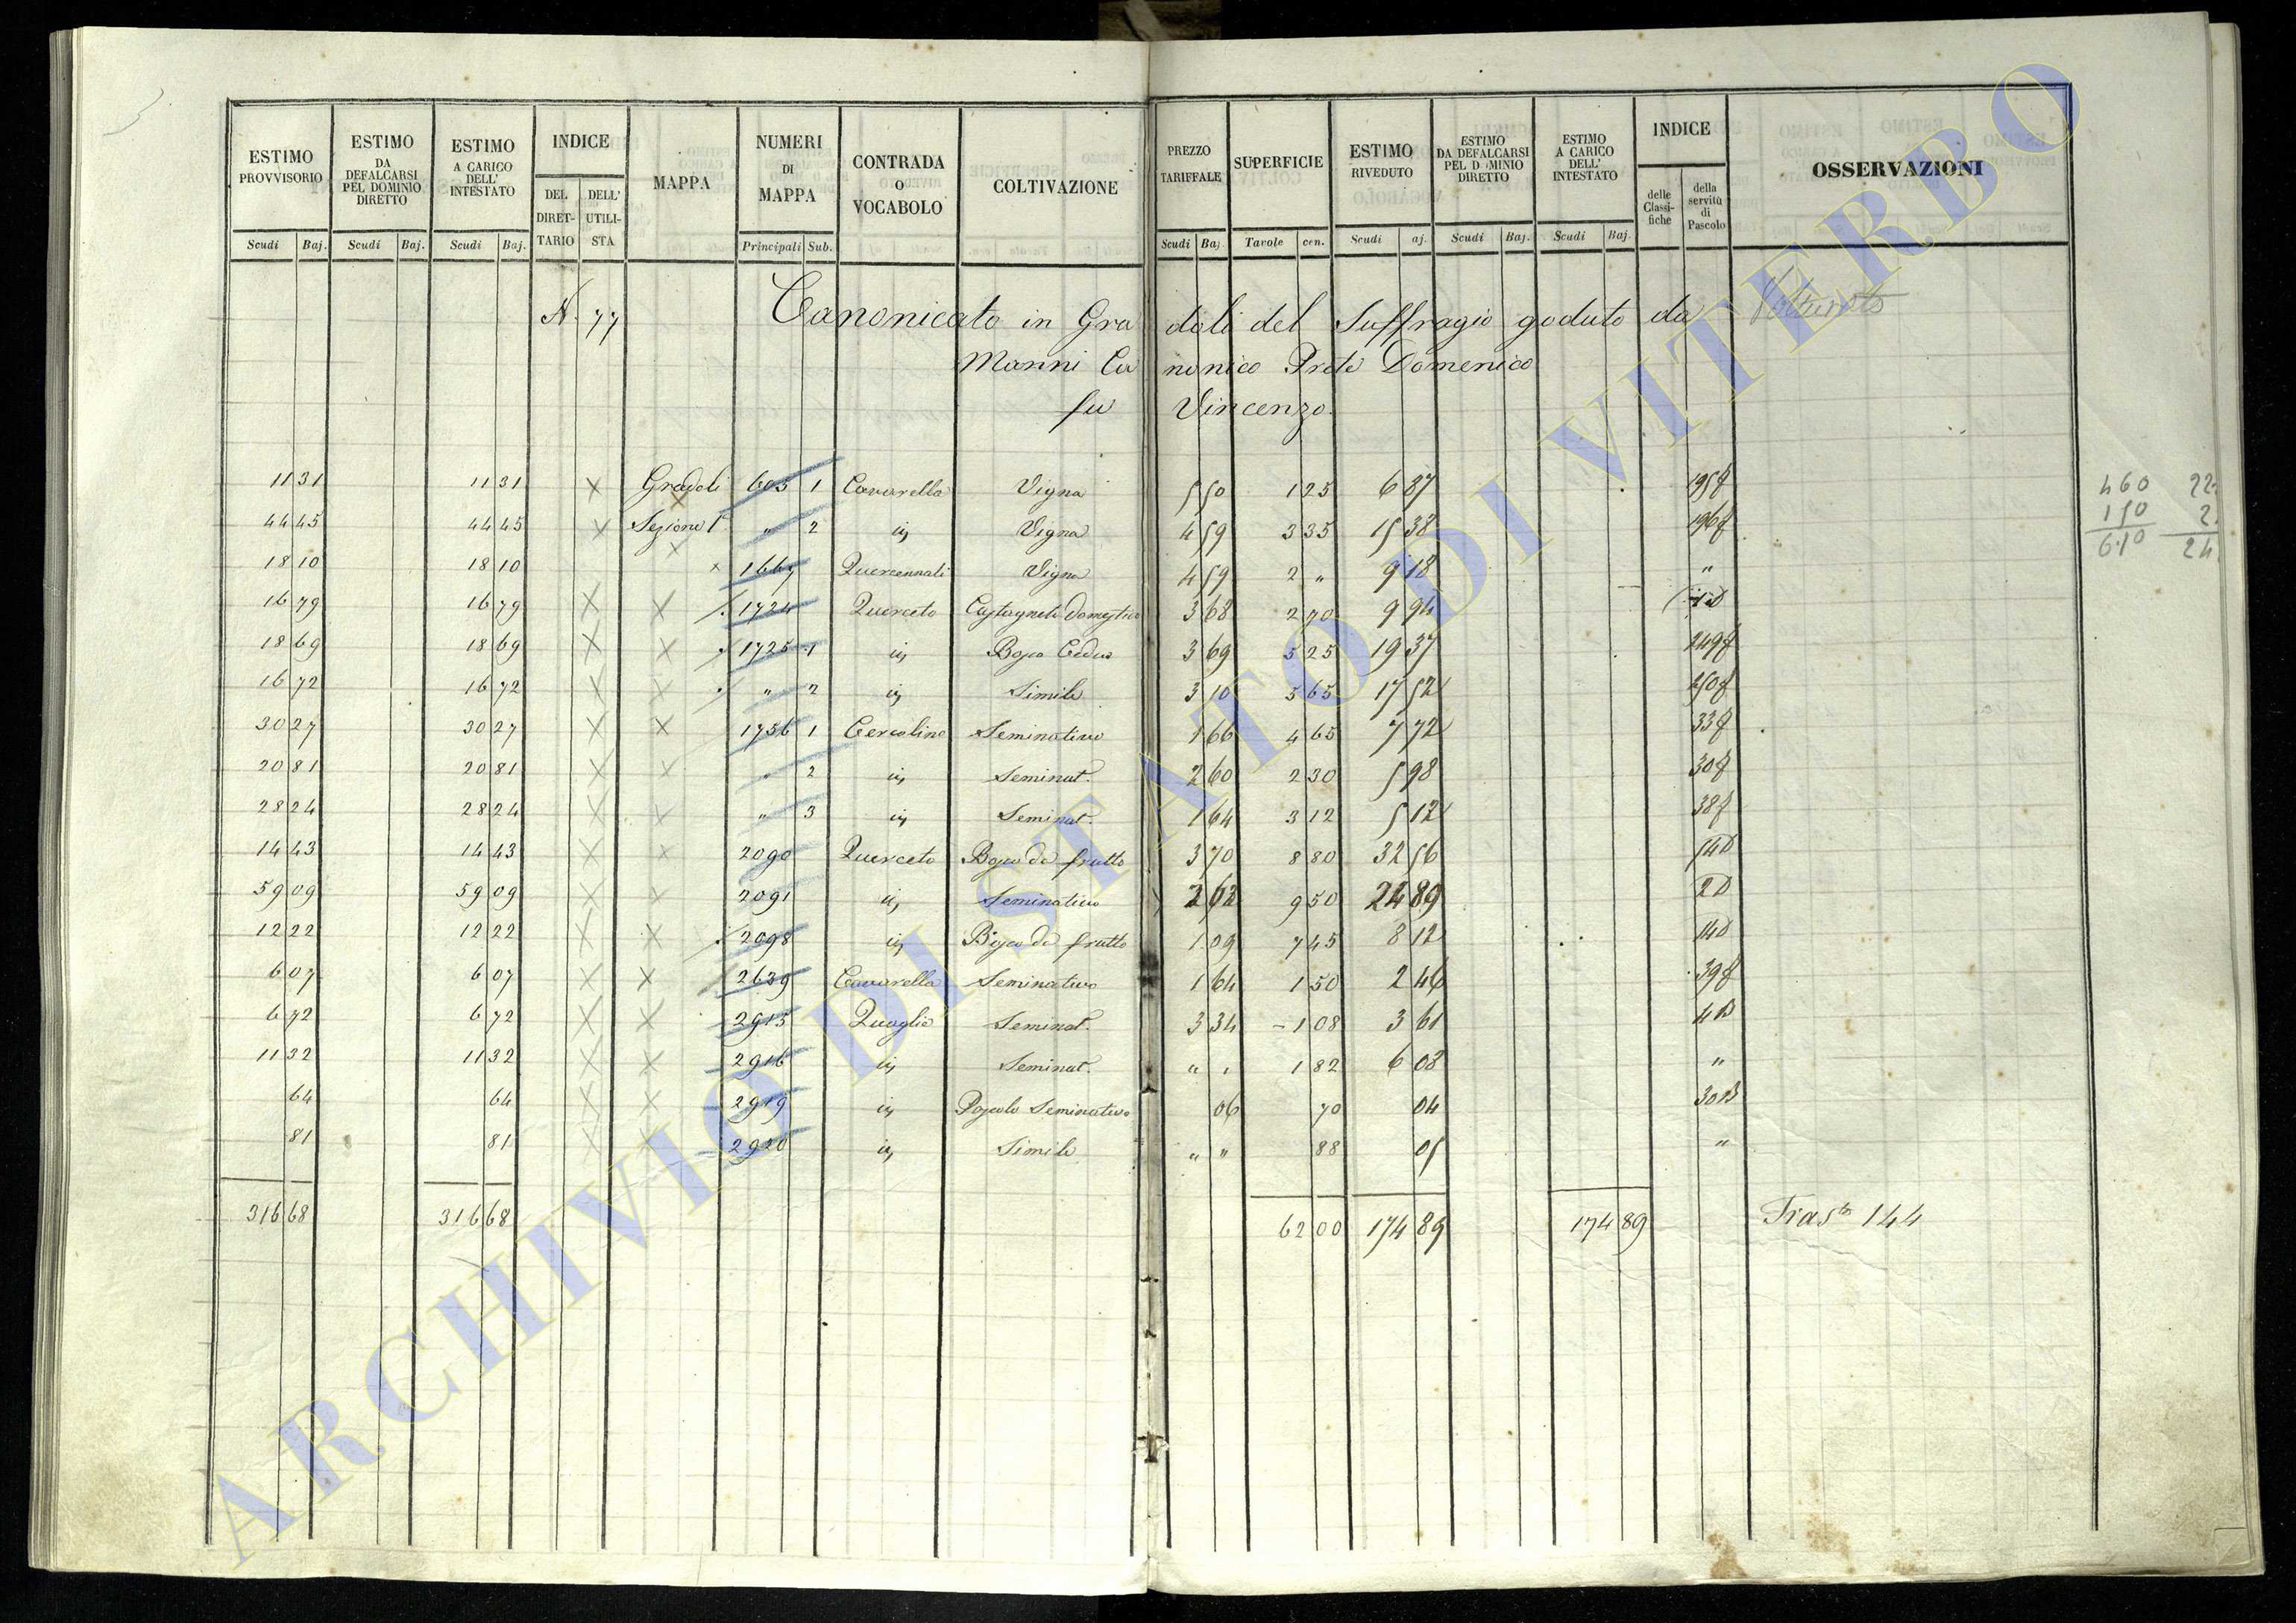 ESTIMO PROVVISORIO Scudi Baj. ESTIMO DA DEFALCARSI PEL DOMINIO DIRETTO Scudi Baj. ESTIMO A CARICO DELL' INTESTATO Scudi Baj. INDICE DEL DIRET-TARIO DELL' UTILI-STA MAPPA NUMERI DI MAPPA Principali Sub. CONTRADA O VOCABOLO COLTIVAZIONE PREZZO TARIFFALE Scudi Baj SUPERFICIE Tavole cen. ESTIMO RIVEDUTO Scudi aj. ESTIMO DA DEFALCARSI PEL D MINIO DIRETTO Scudi Baj. ESTIMO A CARICO DELL' INTESTATO Scudi Baj. INDICE delle Classi-fiche della servitù di Pascolo OSSERVAZIONI
N. 77 Canonicato in Gradoli del Suffragio goduto da
Manni Canonico Prete Domenico
fu Vincenzo.
11 31 11 31 Gradoli 603 1 Cavarella Vigna 5 50 1 25 6 87 195f
44 45 44 45 Sezione 1ª " 2 ij Vigna 4 59 3 35 15 38 196f
18 10 18 10 1667 Vigna 4 59 2 " 9 18 "
16 79 16 79 1724 Querceto Castagneto domestico 3 68 2 70 9 94
18 69 18 69 1725 1 ij Bosco Ceduo 3 69 5 25 19 37 249f
16 72 16 72 " 2 ij Simile 3 10 5 65 17 52 250f
30 27 30 27 1756 1 Cercolino Seminativo 1 66 4 65 7 72 33f
20 81 20 81 " 2 ij Seminat. 2 60 2 30 5 98 30f
28 24 28 24 " 3 ij Seminat. 1 64 3 12 5 12 38f
14 43 14 43 2090 Querceto Bosco da frutto 3 70 8 80 32 56
59 09 59 09 2091 ij Seminativo 2 62 9 50 24 89 2D
12 22 12 22 2098 ij Bosco da frutto 1 09 7 45 8 12 14D
6 07 6 07 2639 Cavarella Seminativo 1 64 1 50 2 46 39f
6 72 6 72 2915 Quaglia Seminat. 3 34 1 08 3 61 4B
11 32 11 32 2916 ij Seminat. " " 1 82 6 08 "
64 64 2919 ij Pascolo Seminativo 06 70 04 30B
81 81 2920 ij Simile " " 88 05 "
316 68 316 68 62 00 174 89 174 89 Trasto 144
460 22
150 2
610 24
ARCHIVIO DI STATO DI VITERBO